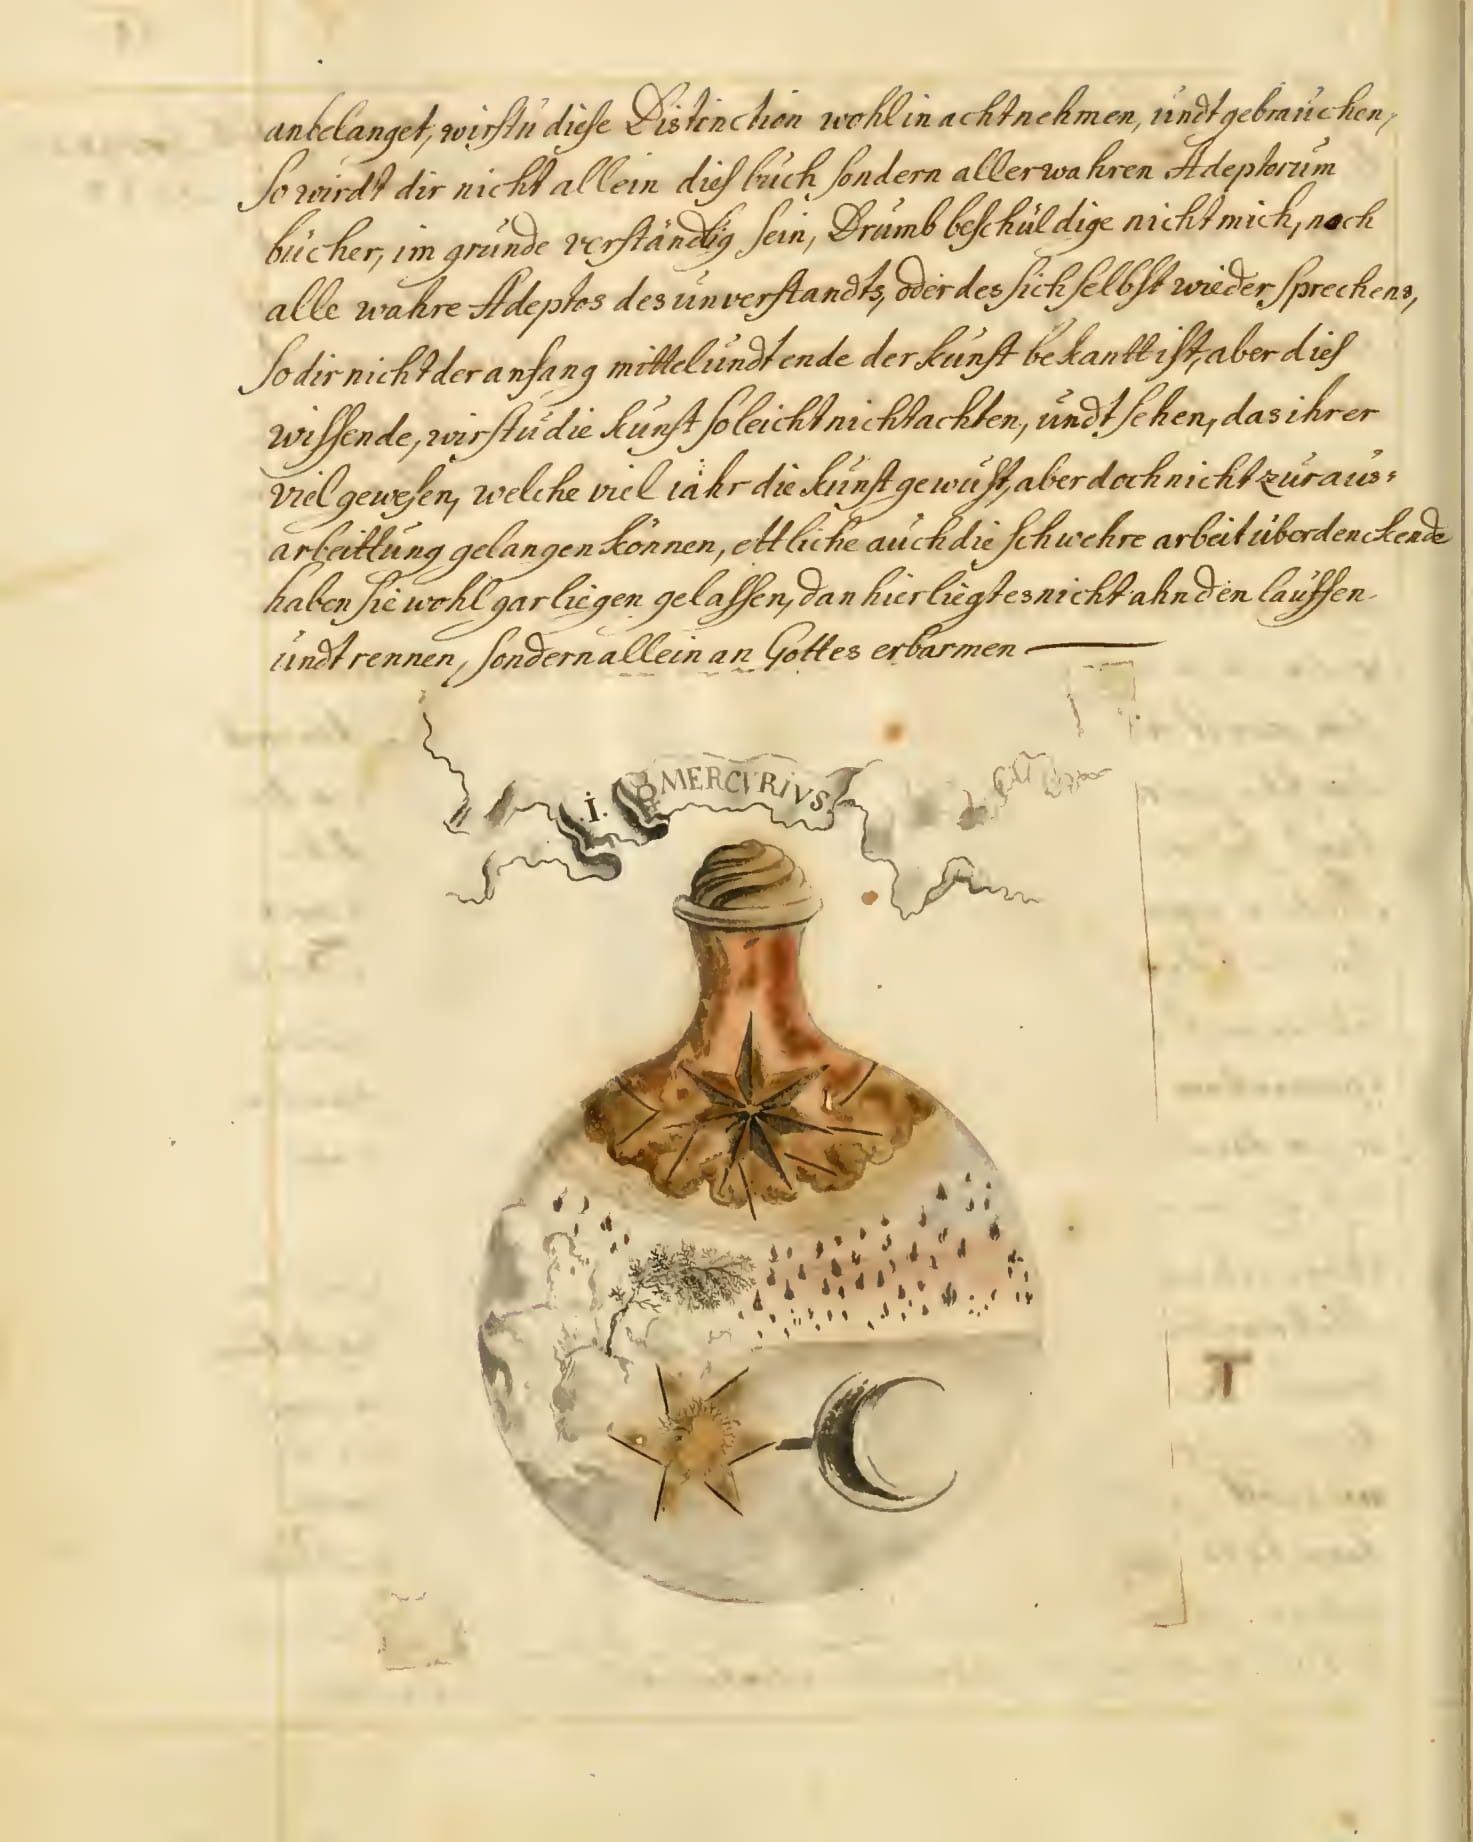 anbelanget, wirstu diese Distinction wohl in acht nehmen, undt gebrauchen,
So wirdt dir nicht allein dies buch sondern aller wahren Adeptorum
bücher, im grunde verständig sein, Drumb beschüldige nicht mich, noch
alle wahre Adeptos des unverstandts, oder des sich selbst wieder sprechens,
So dir nicht der anfang mittel undt ende der kunst bekantt ist, aber dies
wissende, wirstu die kunst so leicht nicht achten, undt sehen, das ihrer
viel gewesen, welche viel iahr die kunst gewust, aber doch nicht zur aus=
arbeittung gelangen können, ettliche auch die schwehre arbeit überdenckende
haben sie wohl gar liegen gelassen, dan hier liegt es nicht ahn den lauffen
undt rennen, sondern allein an Gottes erbarmen
.I. MERCVRIVS.